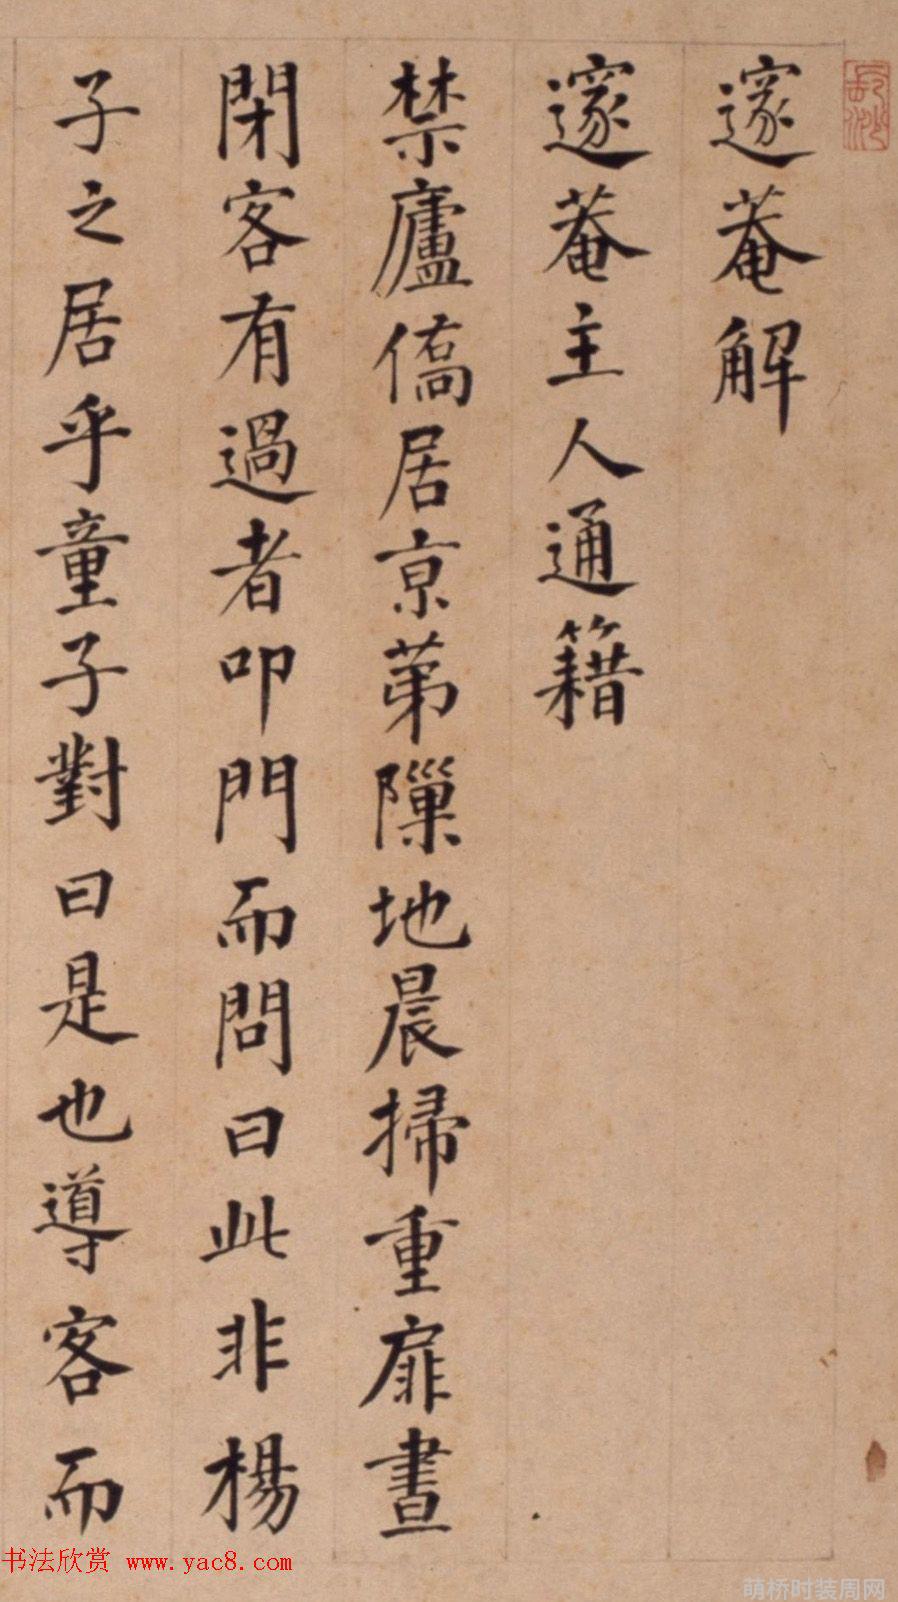 邃菴解
邃菴主人通籍
禁廬僑居京苐隟地晨掃重扉晝
閉客有過者叩門而問曰此非楊
子之居乎童子對曰是也導客而
书法欣赏 www.yac8.com
萌桥时装周网